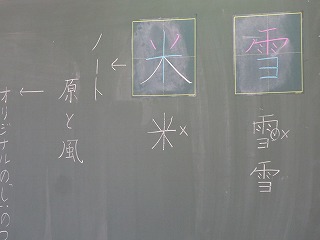 雪
雪×
雪
米
米×
←ノート
原と風
←オリジナルの